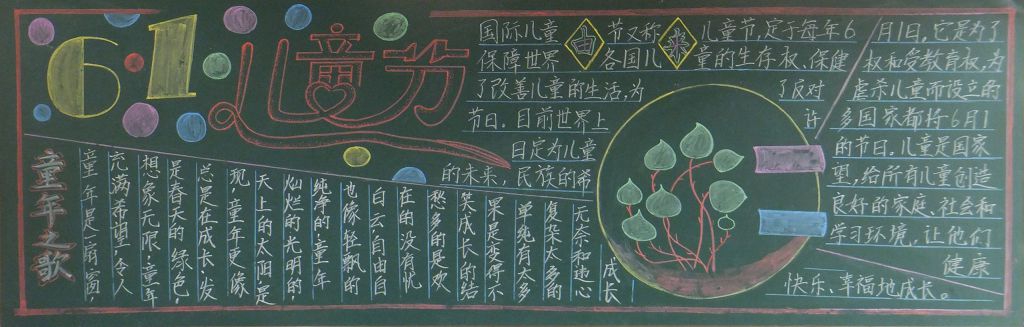 61 儿童节
国际儿童 由 节又称 来 儿童节,定于每年6 月1日,它是为了
保障世界 各国儿 童的生存权、保健 权和受教育权,为
了改善儿童的生活,为 了反对 虐杀儿童而设立的
节日。目前世界上 许 多国家都将6月1
日定为儿童 的节日。儿童是国家
的未来,民族的希 望,给所有儿童创造
良好的家庭、社会和
学习环境,让他们
健康
快乐、幸福地成长。
童年之歌
童年是一扇窗,
充满希望,令人
想象无限。童年
是春天的绿色,
总是在成长、发
现,童年更像
天上的太阳,是
灿烂的光明的,
纯净的童年
也像轻飘的
白云自由自
在的没有忧
愁多的是欢
笑成长的结
果是变得不
单纯有太多
复杂太多的
无奈和违心
成长!